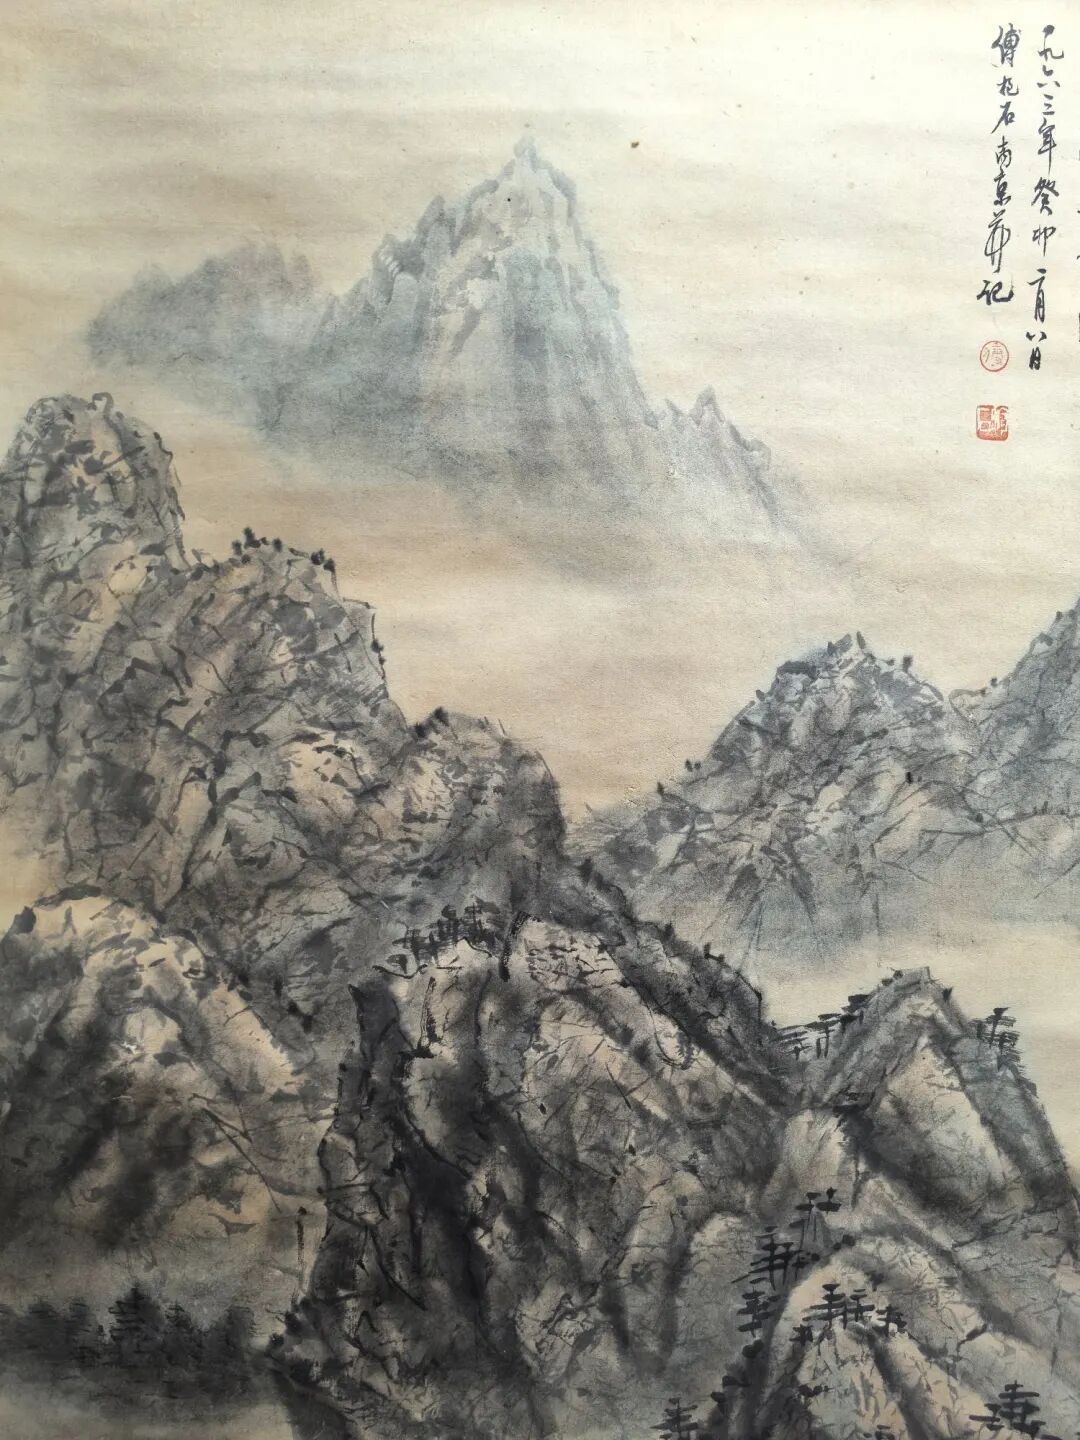 一九六三年癸卯二月八日
傅抱石南京并记